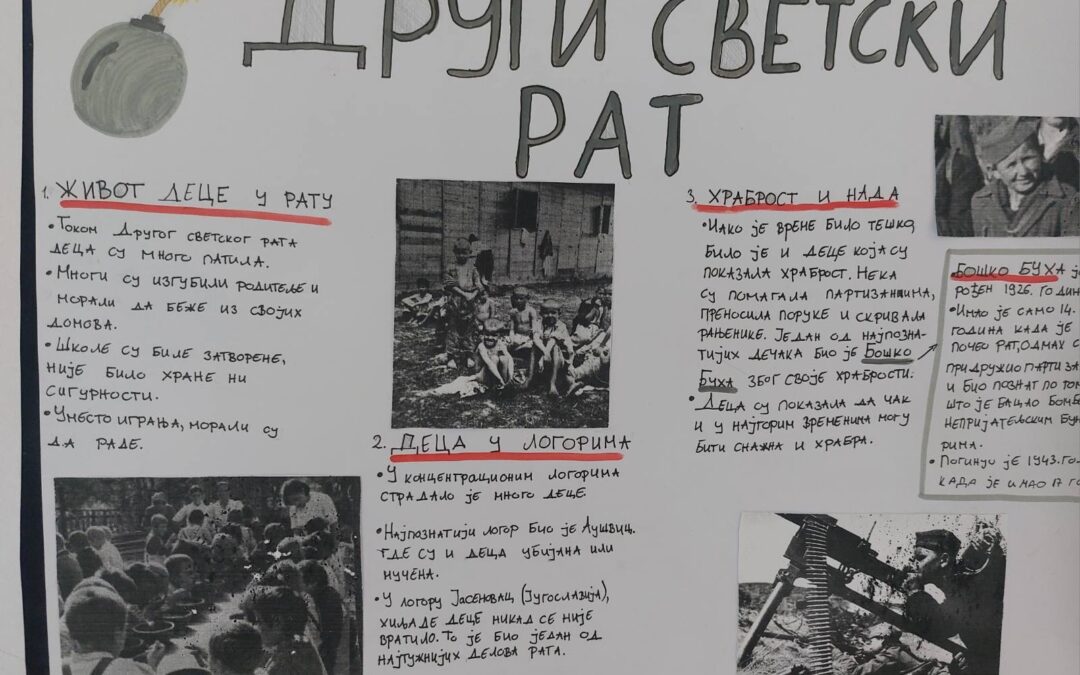 ДРУГИ СВЕТСКИ
РАТ
1. ЖИВОТ ДЕЦЕ У РАТУ
•Током Другог светског рата
деца су много патила.
•Многи су изгубили родитеље и
морали да беже из својих
домова.
•Школе су биле затворене,
није било хране ни
сигурности.
•Уместо играња, морали су
да раде.
2. ДЕЦА У ЛОГОРИМА
•У концентрационим логорима
страдало је много деце.
•Најпознатији логор био је Аушвиц.
где су и деца убијана или
мучена.
•У логору Јасеновац (Југославија),
хиљаде деце никад се није
вратило. То је био један од
најтужнијих делова рата.
3. ХРАБРОСТ И НАДА
•Иако је време било тешко,
било је и деце која су
показала храброст. Нека
су помагала партизанима,
преносила поруке и скривала
рањенике. Један од најпозна-
тијих дечака био је Бошко
Буха због своје храбрости.
•Деца су показала да чак
и у најгорим временима могу
бити снажна и храбра.
•БОШКО БУХА је
рођен 1926. годин
•Имао је само 14.
година када је
почео рат, одмах с
придружио партиза
и био познат по том
што је бацало бомбе
непријатељским бун
рима.
•Погинуо је 1943. го
када је имао 17 го